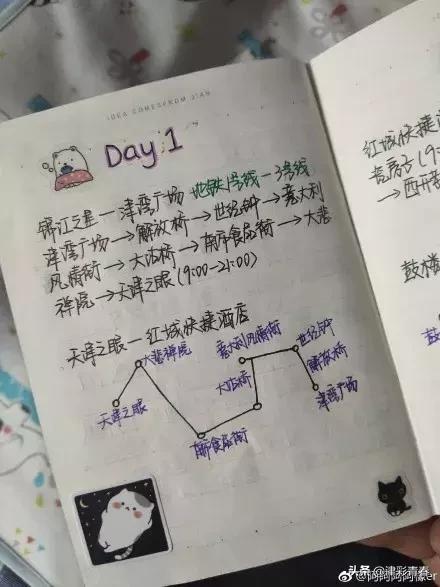 IDEA COMES FROM XIAN
Day 1
锦江之星—津湾广场 地铁1号线—3号线
津湾广场→解放桥→世纪钟→意大利
风情街→大沽桥→南市食品街→大悲
禅院→天津之眼(9:00-21:00)
天津之眼—红城快捷酒店
大悲禅院
意大利风情街
世纪钟
解放桥
大沽桥
津湾广场
天津之眼
南市食品街
红城快捷酒
(9:
→西开
鼓楼
鼓
头条 @津彩青春